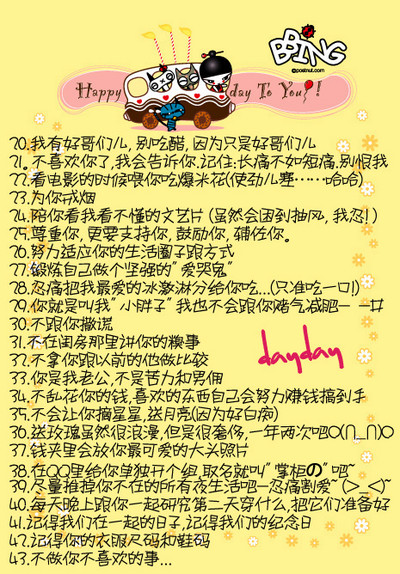 BBING
©postnut.com
Happy day To You!!
20.我有好哥们儿,别吃醋,因为只是好哥们儿
21.不喜欢你了,我会告诉你.记住:长痛不如短痛.别恨我
22.看电影的时候喂你吃爆米花(使劲儿塞……哈哈)
23.为你戒烟
24.陪你看我看不懂的文艺片(虽然会困到抽风,我忍!)
25.尊重你,更要支持你,鼓励你,辅佐你。
26.努力适应你的生活圈子跟方式
27.锻炼自己做个坚强的"爱哭鬼"
28.忍痛把我最爱的冰激淋分给你吃...(只准吃一口!)
29.你就是叫我"小胖子"我也不会跟你赌气减肥— —#
30.不跟你撒谎
31.不在闺房那里讲你的糗事
32.不拿你跟以前的他做比较
dayday
33.你是我老公,不是苦力和男佣
34.不乱花你的钱,喜欢的东西自己会努力赚钱搞到手
35.不会让你摘星星,送月亮(因为好白痴)
36.送玫瑰虽然很浪漫,但是很奢侈,一年两次吧O(∩_∩)O
37.钱夹里会放你最可爱的大头照片
38.在QQ里给你单独开个组,取名就叫"掌柜の"吧~
39.尽量推掉你不在的所有夜生活吧—忍痛割爱~(>_<)~
40.每天晚上跟你一起研究第二天穿什么,把它们准备好
41.记得我们在一起的日子,记得我们的纪念日
42.记得你的衣服尺码和鞋码
43.不做你不喜欢的事...